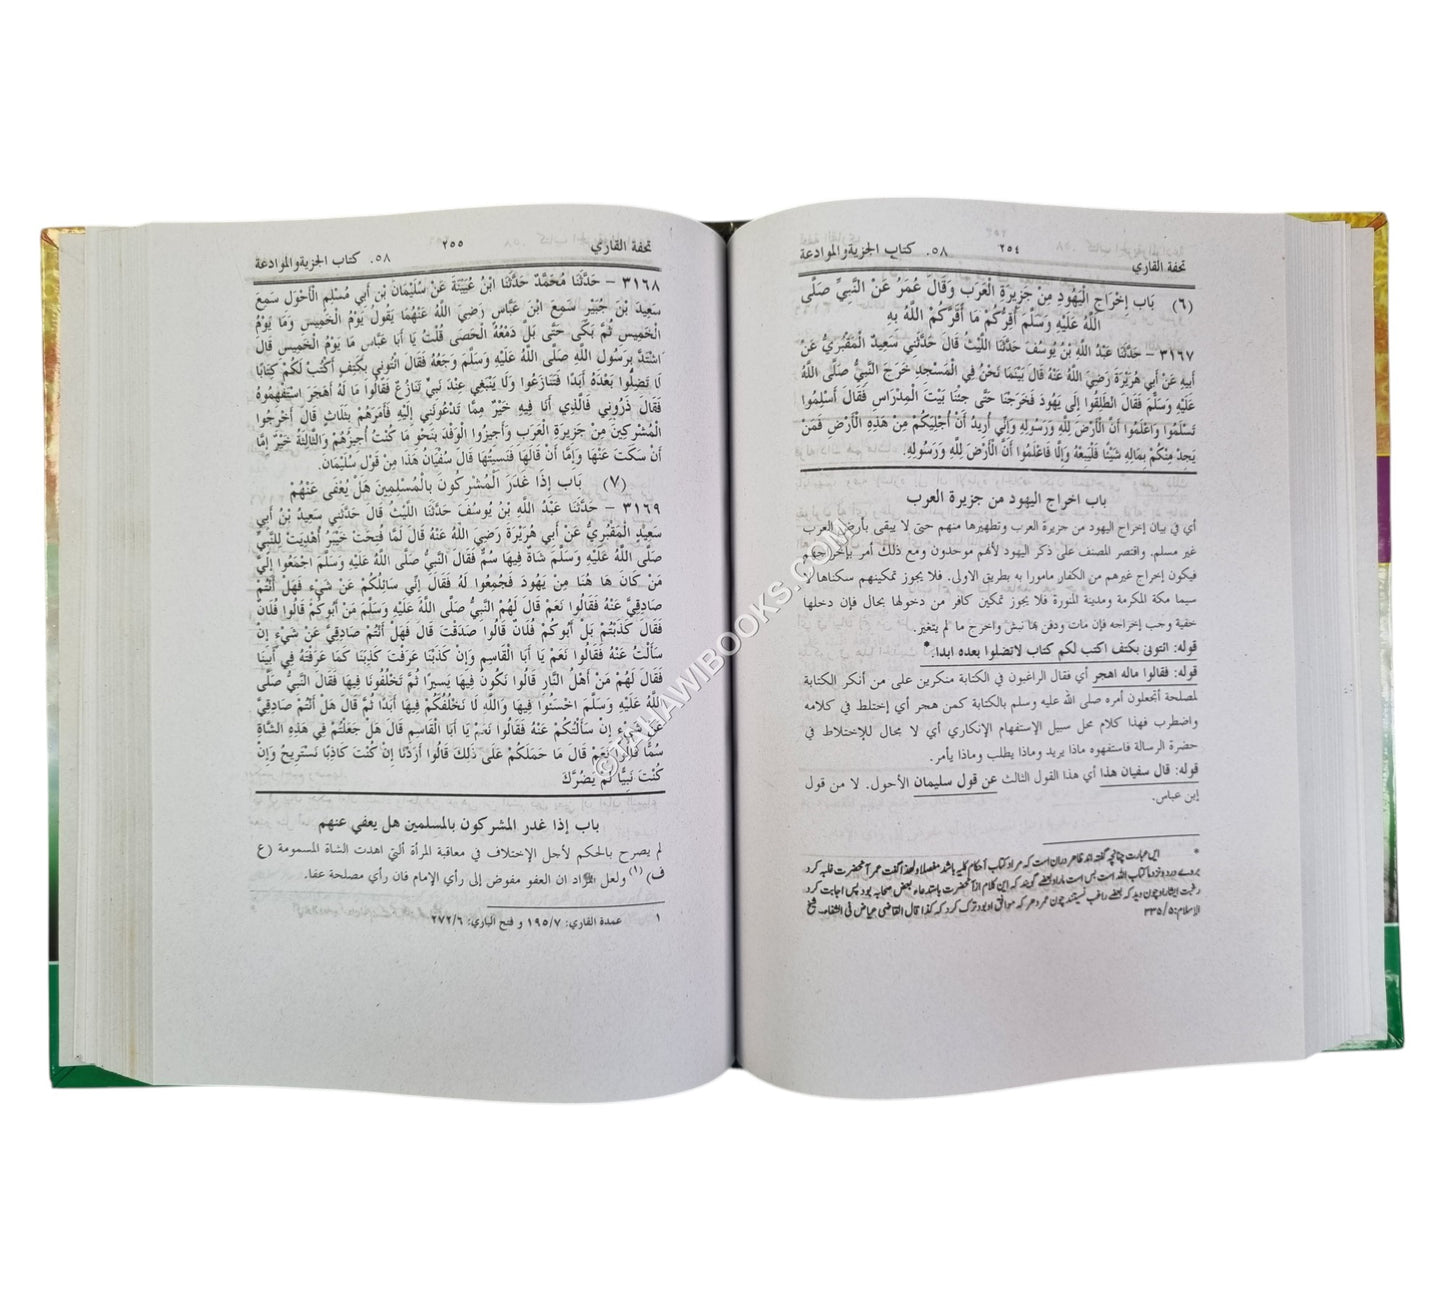 تحفة القاري ٢٥٤ ٥٨. كتاب الجزية والموادعة
(٦) بَاب إِخْرَاجِ الْيَهُودِ مِنْ جَزِيرَةِ الْعَرَبِ وَقَالَ عُمَرُ عَنْ النَّبِيِّ صَلَّى
اللَّهُ عَلَيْهِ وَسَلَّمَ أُقِرُّكُمْ مَا أَقَرَّكُمْ اللَّهُ بِهِ
٣١٦٧ – حَدَّثَنَا عَبْدُ اللَّهِ بْنُ يُوسُفَ حَدَّثَنَا اللَّيْثُ قَالَ حَدَّثَنِي سَعِيدٌ الْمَقْبُرِيُّ عَنْ
أَبِيهِ عَنْ أَبِي هُرَيْرَةَ رَضِيَ اللَّهُ عَنْهُ قَالَ بَيْنَمَا نَحْنُ فِي الْمَسْجِدِ خَرَجَ النَّبِيُّ صَلَّى اللَّهُ
عَلَيْهِ وَسَلَّمَ فَقَالَ انْطَلِقُوا إِلَى يَهُودَ فَخَرَجْنَا حَتَّى جِئْنَا بَيْتَ الْمِدْرَاسِ فَقَالَ أَسْلِمُوا
تَسْلَمُوا وَاعْلَمُوا أَنَّ الْأَرْضَ لِلَّهِ وَرَسُولِهِ وَإِنِّي أُرِيدُ أَنْ أُجْلِيَكُمْ مِنْ هَذِهِ الْأَرْضِ فَمَنْ
يَجِدْ مِنْكُمْ بِمَالِهِ شَيْئًا فَلْيَبِعْهُ وَإِلَّا فَاعْلَمُوا أَنَّ الْأَرْضَ لِلَّهِ وَرَسُولِهِ.
باب اخراج اليهود من جزيرة العرب
أي في بيان إخراج اليهود من جزيرة العرب وتطهيرها منهم حتى لا يبقى بأرض العرب
غير مسلم. واقتصر المصنف على ذكر اليهود لأنهم موحدون ومع ذلك أمر بإخراجهم
فيكون إخراج غيرهم من الكفار مامورا به بطريق الاولى. فلا يجوز تمكينهم سكناها لا
سيما مكة المكرمة ومدينة المنورة فلا يجوز تمكين كافر من دخولها بحال فإن دخلها
خفية وجب إخراجه فإن مات ودفن بها نبش واخرج ما لم يتغير.
قوله: ائتونى بكتف اكتب لكم كتاب لاتضلوا بعده ابدا.*
قوله: فقالوا ماله اهجر أي فقال الراغبون في الكتابة منكرين على من أنكر الكتابة
لمصلحة أتجعلون أمره صلى الله عليه وسلم بالكتابة كمن هجر أي إختلط في كلامه
واضطرب فهذا كلام محل سبيل الإستفهام الإنكاري أي لا مجال للإختلاط في
حضرة الرسالة فاستفهوه ماذا يريد وماذا يطلب وماذا يأمر.
قوله: قال سفيان هذا أي هذا القول الثالث عن قول سليمان الأحول. لا من قول
إبن عباس.
* ایں عبارت چنانچہ گفتہ اند ظاہر دران است کہ مراد کتاب احکام کلیہ باشد مفصلا ولھذا گفت عمر آنحضرت غلبہ کرد
بروے درد ونزد ما کتاب اللہ است بس است مارا وبعضے گویند کہ این کلام از آنحضرت باستدعاء بعض صحابہ بود پس اجابت کرد
رغبت ایشان را وچون دید کہ بعضے راغب نیستند چون عمر وھر کہ موافق او بود ترک کرد کہ کذا قال القاضی عیاض فی الشفاء. شیخ
الاسلام: ٣٣٥/٥
تحفة القاري ٢٥٥ ٥٨. كتاب الجزية والموادعة
٣١٦٨ – حَدَّثَنَا مُحَمَّدٌ حَدَّثَنَا ابْنُ عُيَيْنَةَ عَنْ سُلَيْمَانَ بْنِ أَبِي مُسْلِمٍ الْأَحْوَلِ سَمِعَ
سَعِيدَ بْنَ جُبَيْرٍ سَمِعَ ابْنَ عَبَّاسٍ رَضِيَ اللَّهُ عَنْهُمَا يَقُولُ يَوْمُ الْخَمِيسِ وَمَا يَوْمُ
الْخَمِيسِ ثُمَّ بَكَى حَتَّى بَلَّ دَمْعُهُ الْحَصَى قُلْتُ يَا أَبَا عَبَّاسٍ مَا يَوْمُ الْخَمِيسِ قَالَ
اشْتَدَّ بِرَسُولِ اللَّهِ صَلَّى اللَّهُ عَلَيْهِ وَسَلَّمَ وَجَعُهُ فَقَالَ ائْتُونِي بِكَتِفٍ أَكْتُبْ لَكُمْ كِتَابًا
لَا تَضِلُّوا بَعْدَهُ أَبَدًا فَتَنَازَعُوا وَلَا يَنْبَغِي عِنْدَ نَبِيٍّ تَنَازُعٌ فَقَالُوا مَا لَهُ أَهَجَرَ اسْتَفْهِمُوهُ
فَقَالَ ذَرُونِي فَالَّذِي أَنَا فِيهِ خَيْرٌ مِمَّا تَدْعُونَنِي إِلَيْهِ فَأَمَرَهُمْ بِثَلَاثٍ قَالَ أَخْرِجُوا
الْمُشْرِكِينَ مِنْ جَزِيرَةِ الْعَرَبِ وَأَجِيزُوا الْوَفْدَ بِنَحْوِ مَا كُنْتُ أُجِيزُهُمْ وَالثَّالِثَةُ خَيْرٌ إِمَّا
أَنْ سَكَتَ عَنْهَا وَإِمَّا أَنْ قَالَهَا فَنَسِيتُهَا قَالَ سُفْيَانُ هَذَا مِنْ قَوْلِ سُلَيْمَانَ.
(٧) بَاب إِذَا غَدَرَ الْمُشْرِكُونَ بِالْمُسْلِمِينَ هَلْ يُعْفَى عَنْهُمْ
٣١٦٩ – حَدَّثَنَا عَبْدُ اللَّهِ بْنُ يُوسُفَ حَدَّثَنَا اللَّيْثُ قَالَ حَدَّثَنِي سَعِيدُ بْنُ أَبِي
سَعِيدٍ الْمَقْبُرِيُّ عَنْ أَبِي هُرَيْرَةَ رَضِيَ اللَّهُ عَنْهُ قَالَ لَمَّا فُتِحَتْ خَيْبَرُ أُهْدِيَتْ لِلنَّبِيِّ
صَلَّى اللَّهُ عَلَيْهِ وَسَلَّمَ شَاةٌ فِيهَا سُمٌّ فَقَالَ النَّبِيُّ صَلَّى اللَّهُ عَلَيْهِ وَسَلَّمَ اجْمَعُوا إِلَيَّ
مَنْ كَانَ هَا هُنَا مِنْ يَهُودَ فَجُمِعُوا لَهُ فَقَالَ إِنِّي سَائِلُكُمْ عَنْ شَيْءٍ فَهَلْ أَنْتُمْ
صَادِقِيَّ عَنْهُ فَقَالُوا نَعَمْ قَالَ لَهُمْ النَّبِيُّ صَلَّى اللَّهُ عَلَيْهِ وَسَلَّمَ مَنْ أَبُوكُمْ قَالُوا فُلَانٌ
فَقَالَ كَذَبْتُمْ بَلْ أَبُوكُمْ فُلَانٌ قَالُوا صَدَقْتَ قَالَ فَهَلْ أَنْتُمْ صَادِقِيَّ عَنْ شَيْءٍ إِنْ
سَأَلْتُ عَنْهُ فَقَالُوا نَعَمْ يَا أَبَا الْقَاسِمِ وَإِنْ كَذَبْنَا عَرَفْتَ كَذِبَنَا كَمَا عَرَفْتَهُ فِي أَبِينَا
فَقَالَ لَهُمْ مَنْ أَهْلُ النَّارِ قَالُوا نَكُونُ فِيهَا يَسِيرًا ثُمَّ تَخْلُفُونَا فِيهَا فَقَالَ النَّبِيُّ صَلَّى
اللَّهُ عَلَيْهِ وَسَلَّمَ اخْسَئُوا فِيهَا وَاللَّهِ لَا نَخْلُفُكُمْ فِيهَا أَبَدًا ثُمَّ قَالَ هَلْ أَنْتُمْ صَادِقِيَّ
عَنْ شَيْءٍ إِنْ سَأَلْتُكُمْ عَنْهُ فَقَالُوا نَعَمْ يَا أَبَا الْقَاسِمِ قَالَ هَلْ جَعَلْتُمْ فِي هَذِهِ الشَّاةِ
سُمًّا قَالُوا نَعَمْ قَالَ مَا حَمَلَكُمْ عَلَى ذَلِكَ قَالُوا أَرَدْنَا إِنْ كُنْتَ كَاذِبًا نَسْتَرِيحُ وَإِنْ
كُنْتَ نَبِيًّا لَمْ يَضُرَّكَ
باب إذا غدر المشركون بالمسلمين هل يعفي عنهم
لم يصرح بالحكم لأجل الإختلاف في معاقبة المرأة ألتي اهدت الشاة المسمومة (ع
ف)(١) ولعل المراد ان العفو مفوض إلى رأي الإمام فان رأي مصلحة عفا.
١ عمدة القاري: ١٩٥/٧ و فتح الباري: ٢٧٢/٦
©TAHAWIBOOKS.COM